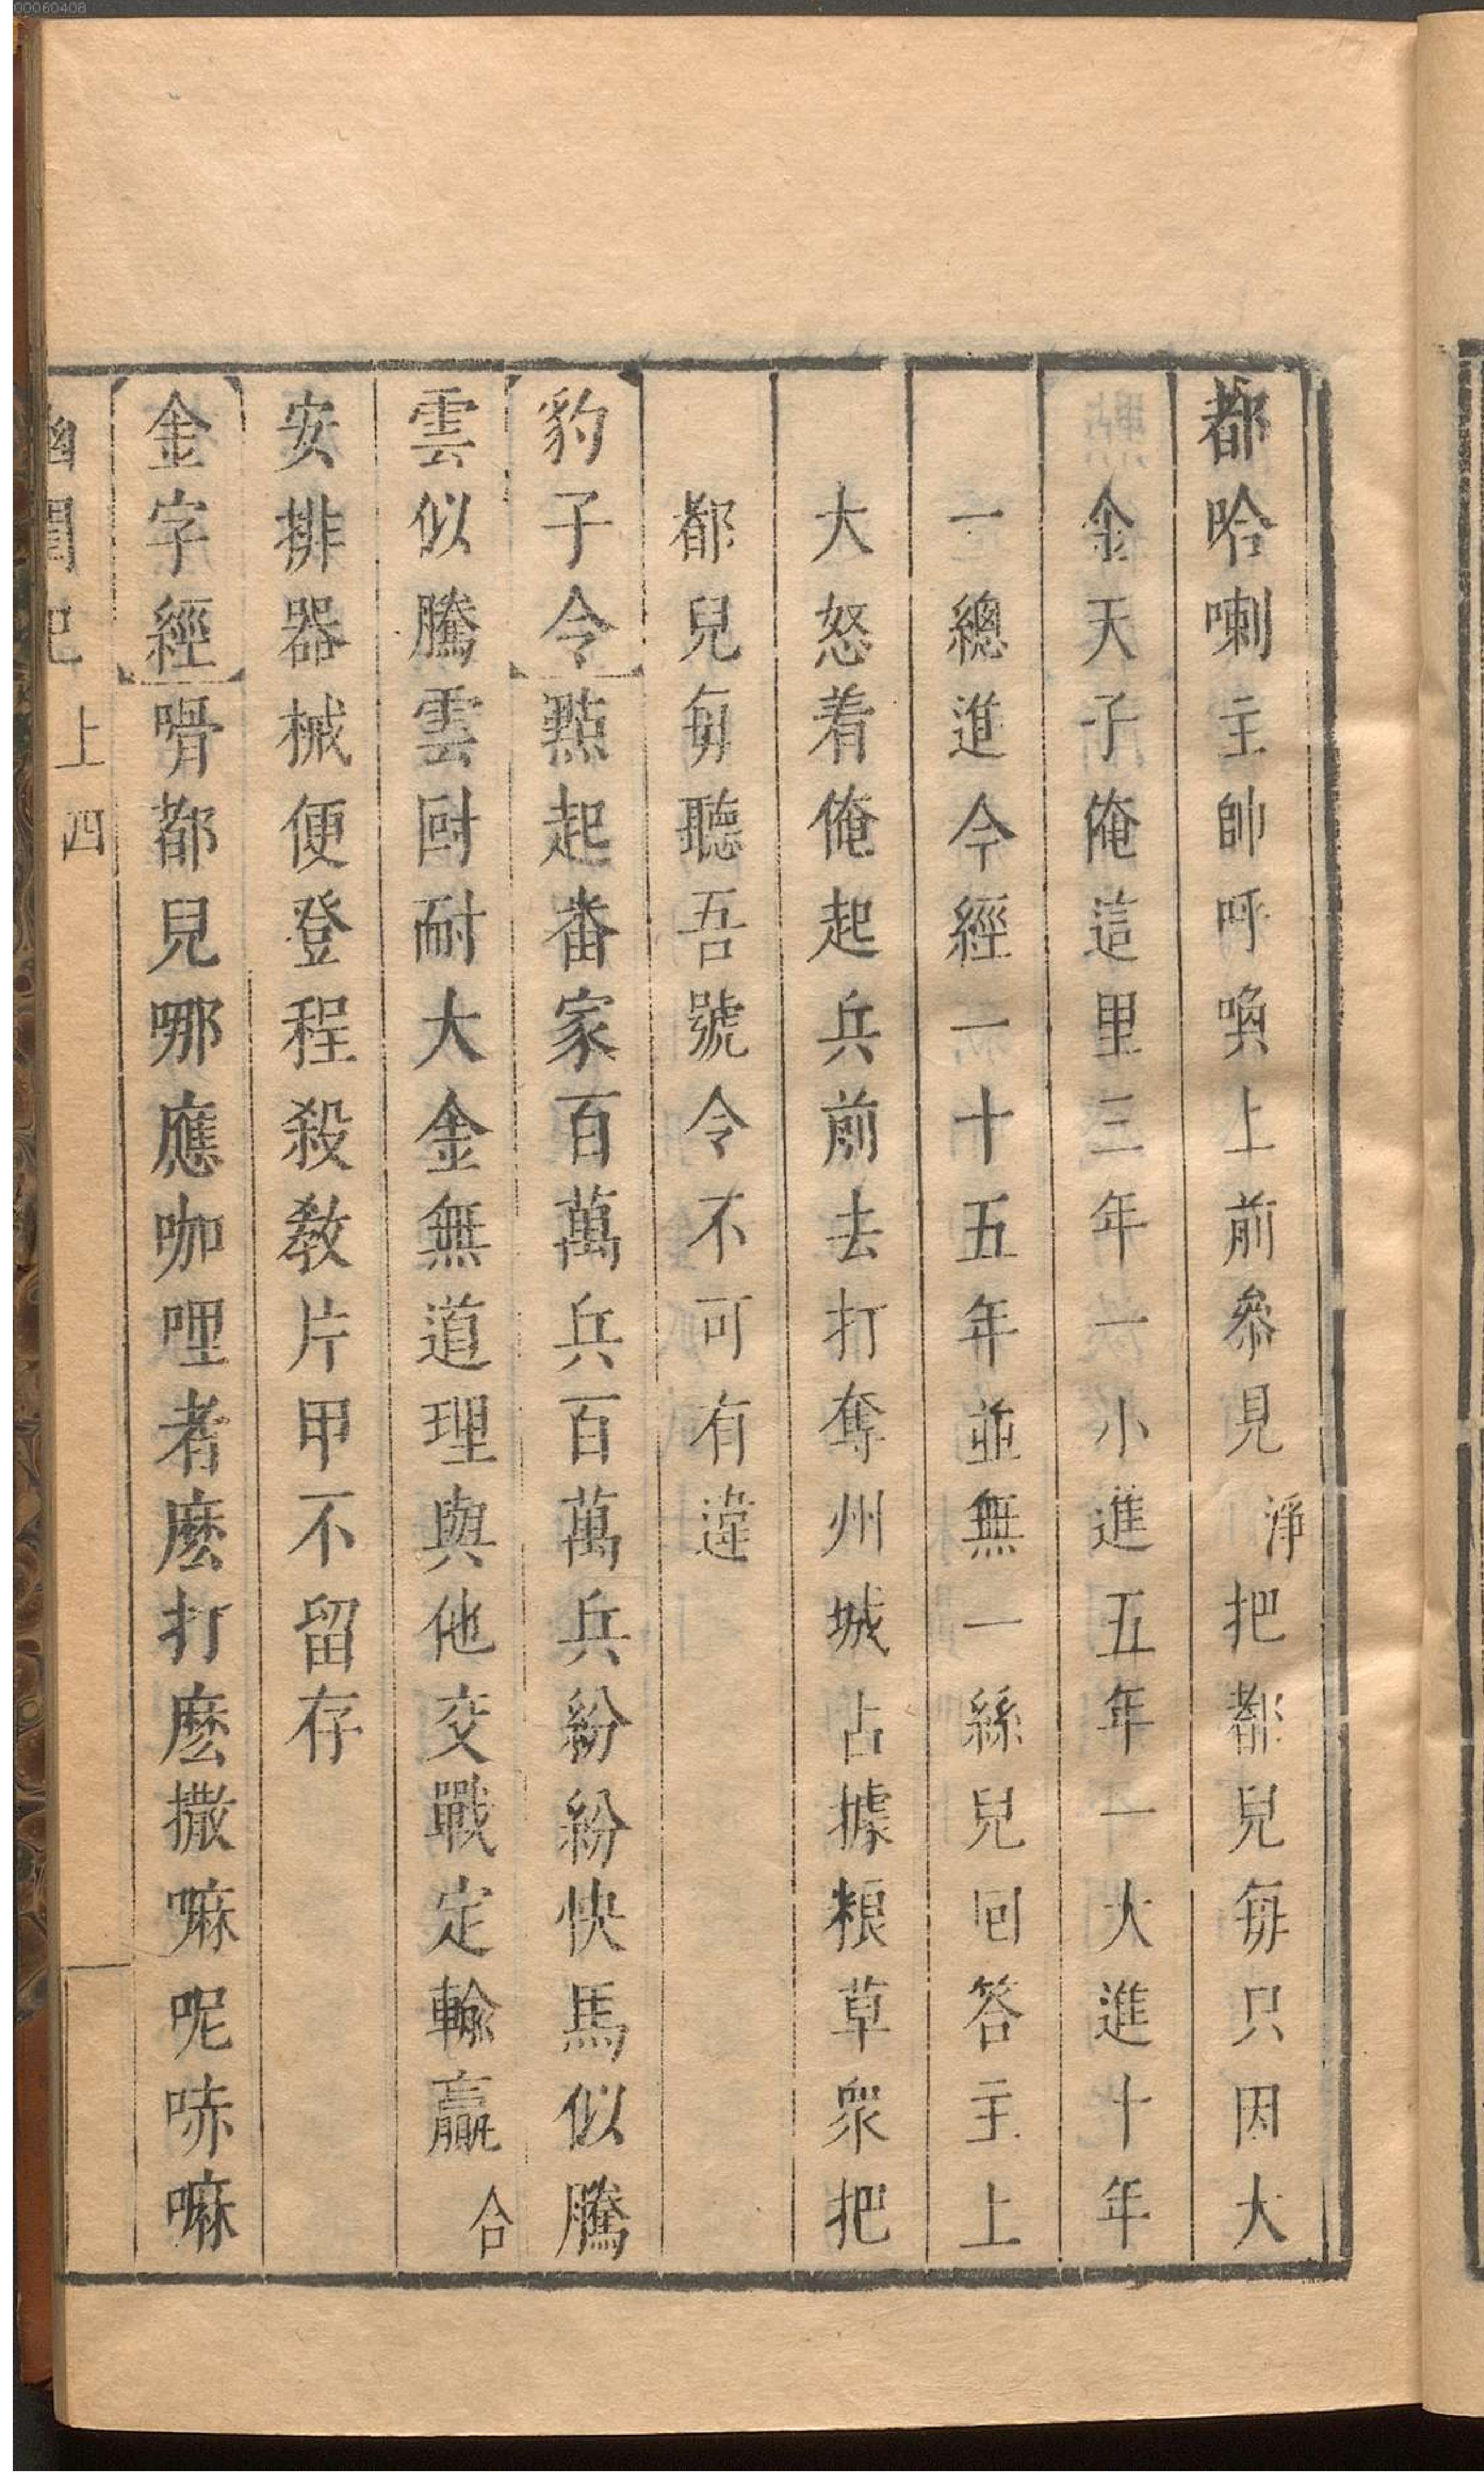 00060408
都哈喇主帥呼喚上前叅見淨把都兒每只因大
金天子俺這里三年一小進五年一大進十年
一總進今經一十五年並無一絲兒回答主上
大怒着俺起兵前去打奪州城占據粮草衆把
都兒每聽吾號令不可有違
豹子令㸃起番家百萬兵百萬兵紛紛快馬似騰
雲似騰雲尀耐大金無道理與他交戰定輸贏合
安排器械便登程殺教片甲不留存
金字經嗗都兒哪應咖哩者麽打麽撒嘛呢哧嘛
幽閨記 上 四